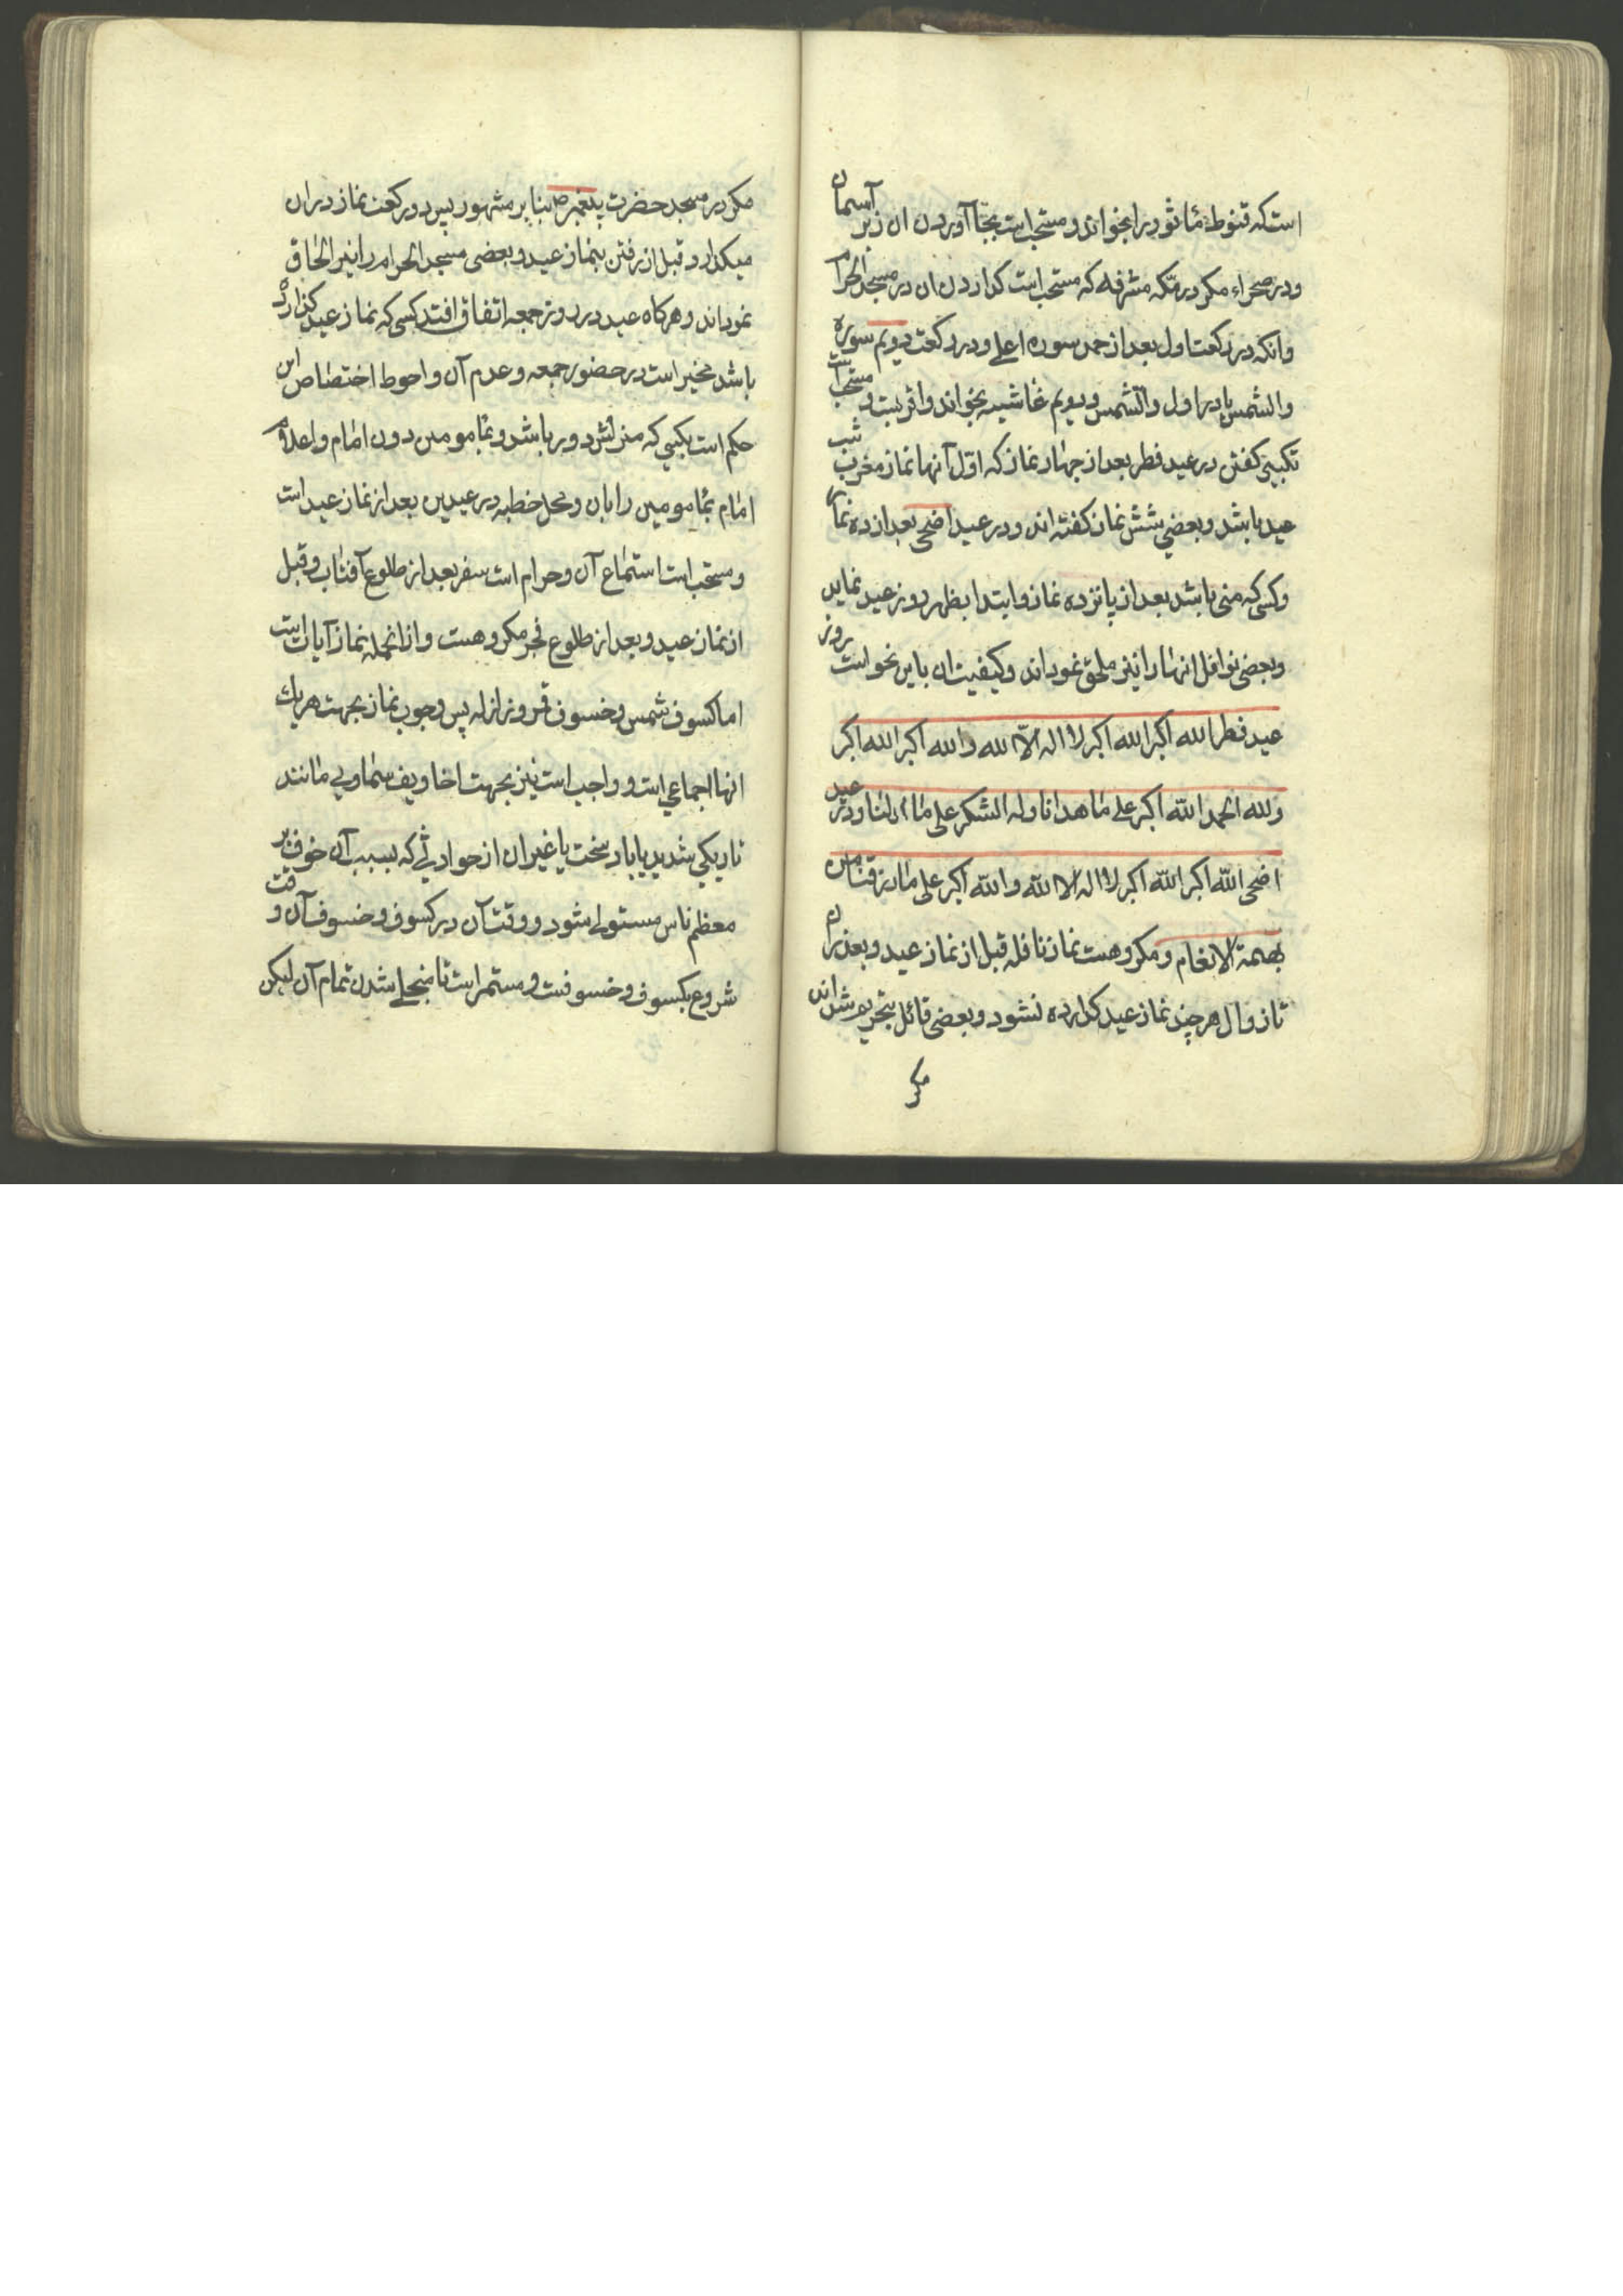 است که قنوط مأثور را بخواند و مستحب است بجا آوردن ان زیر آسمان
و در صحراء مکر در مکه مشرفه که مستحب است کذاردن ان در مسجد الحرام
وانکه در رکعت اول بعد از حمد سوره اعلی و در رکعت دویم سوره
والشمس یا در اول والشمس و دویم غاشیه بخواند واقربست و مستحب است
تکبیر کفتن در عید فطر بعد از چهار نماز که اوّل آنها نماز مغرب شب
عید باشد و بعضی شش نماز کفته اند و در عید اضحی بعد از ده نماز
وکسی که منی باشد بعد از پانزده نماز وابتدا بظهر روز عید نماید
وبعضی نوافل انها را نیز ملحق نموداند وکیفیت ان باین نحو است روز
عید فطر الله اکبر الله اکبر لا اله الّا الله والله اکبر الله اکبر
ولله الحمد الله اکبر علی ما هدانا وله الشکر علی ما اولنا ودر عید
اضحی الله اکبر الله اکبر لا اله الا الله والله اکبر علی ما رزقنا من
بهیمة الانعام ومکروهست نماز نافله قبل از نماز عید وبعد از ان
تا زوال هر چند نماز عید کذارده نشود و بعضی قائل بتحریم شده اند
مکر
مکر در مسجد حضرت پیغمبر ص بنابر مشهور پس دو رکعت نماز در ان
میکذارد قبل از رفتن بنماز عید و بعضی مسجد الحرام را نیز الحاق
نموداند وهرکاه عید در روز جمعه اتفاق افتد کسی که نماز عید کذارده
باشد مخیر است در حضور جمعه وعدم آن واحوط اختصاص این
حکم است بکسی که منزلش دور باشد و بمامومین دون امام واعلام
امام بمامومین را بان ومحل خطبه در عیدین بعد از نماز عید است
ومستحب است استماع آن وحرام است سفر بعد از طلوع آفتاب وقبل
از نماز عید وبعد از طلوع فجر مکروهست وازانجمله نماز آیات است
اما کسوف شمس وخسوف قمر وزلزله پس وجوب نماز بجهت هریك
انها اجماعی است و واجب است نیز بجهت اخاویف سماوی مانند
تاریکی شدید یا باد سخت یا غیر ان از حوادثی که بسبب آن خوف بر
معظم ناس مستولی شود و وقت آن در کسوف وخسوف آن وقت
شروع بکسوف وخسوفست ومستمر است تا منجلی شدن تمام آن لیکن